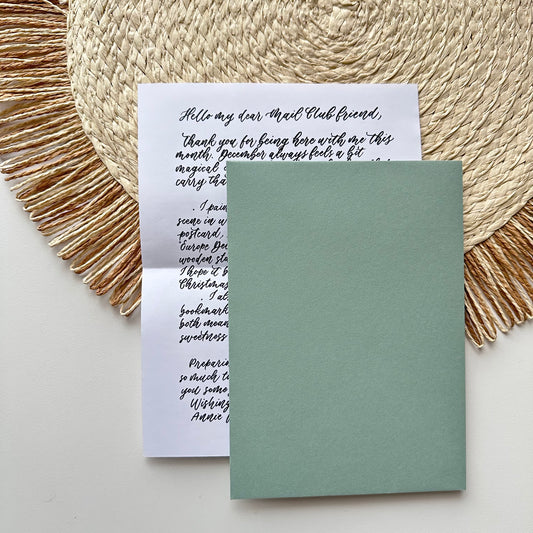 Hello my dear Mail Club friend,
Thank you for being here with me this
month. December always feels a bit
magical
carry tha
. I pain
scene in w
postcard,
Europe Dec
wooden sta
I hope it b
Christmas
. I al
bookmark
both mean
sweetness
Preparin
so much t
you some
Wishing
Annie